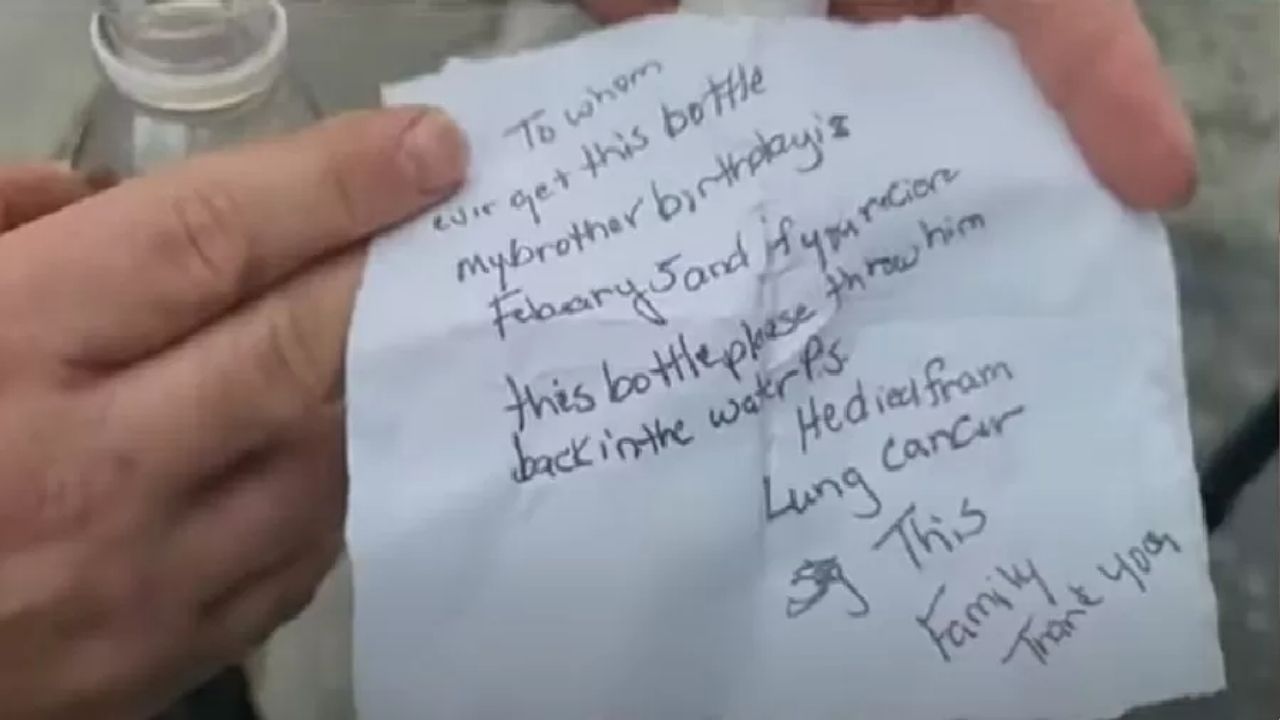 To whom
ever get this bottle
my brother birthday is
Febuary 5 and if you recione
this bottle please throw him
back in the water Ps.
He died fram
Lung cancer
This
Family
Thank you